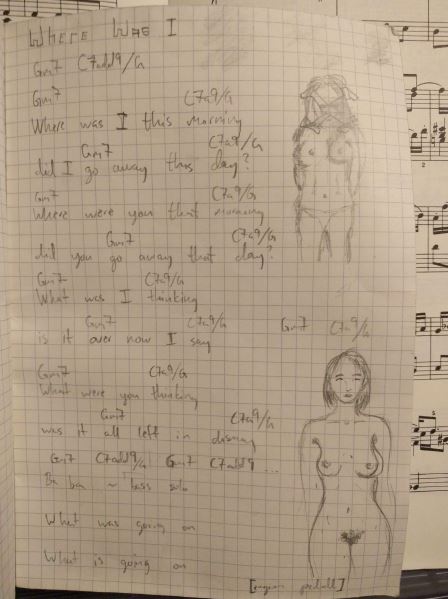 WHERE WAS I
Gm7 C7add9/G
Gm7 C7a9/G
Where was I this morning
Gm7 C7a9/G
did I go away this day?
Gm7 C7a9/G
Where were you that morning
Gm7 C7a9/G
did you go away that day?
Gm7 C7a9/G
What was I thinking
Gm7 C7a9/G Gm7 C7a9/G
is it over now I say
Gm7 C7a9/G
What were you thinking
Gm7 C7a9/G
was it all left in dismay
Gm7 C7add9/G Gm7 C7add9 ...
Ba ba ~ bass solo
What was going on
What is going on